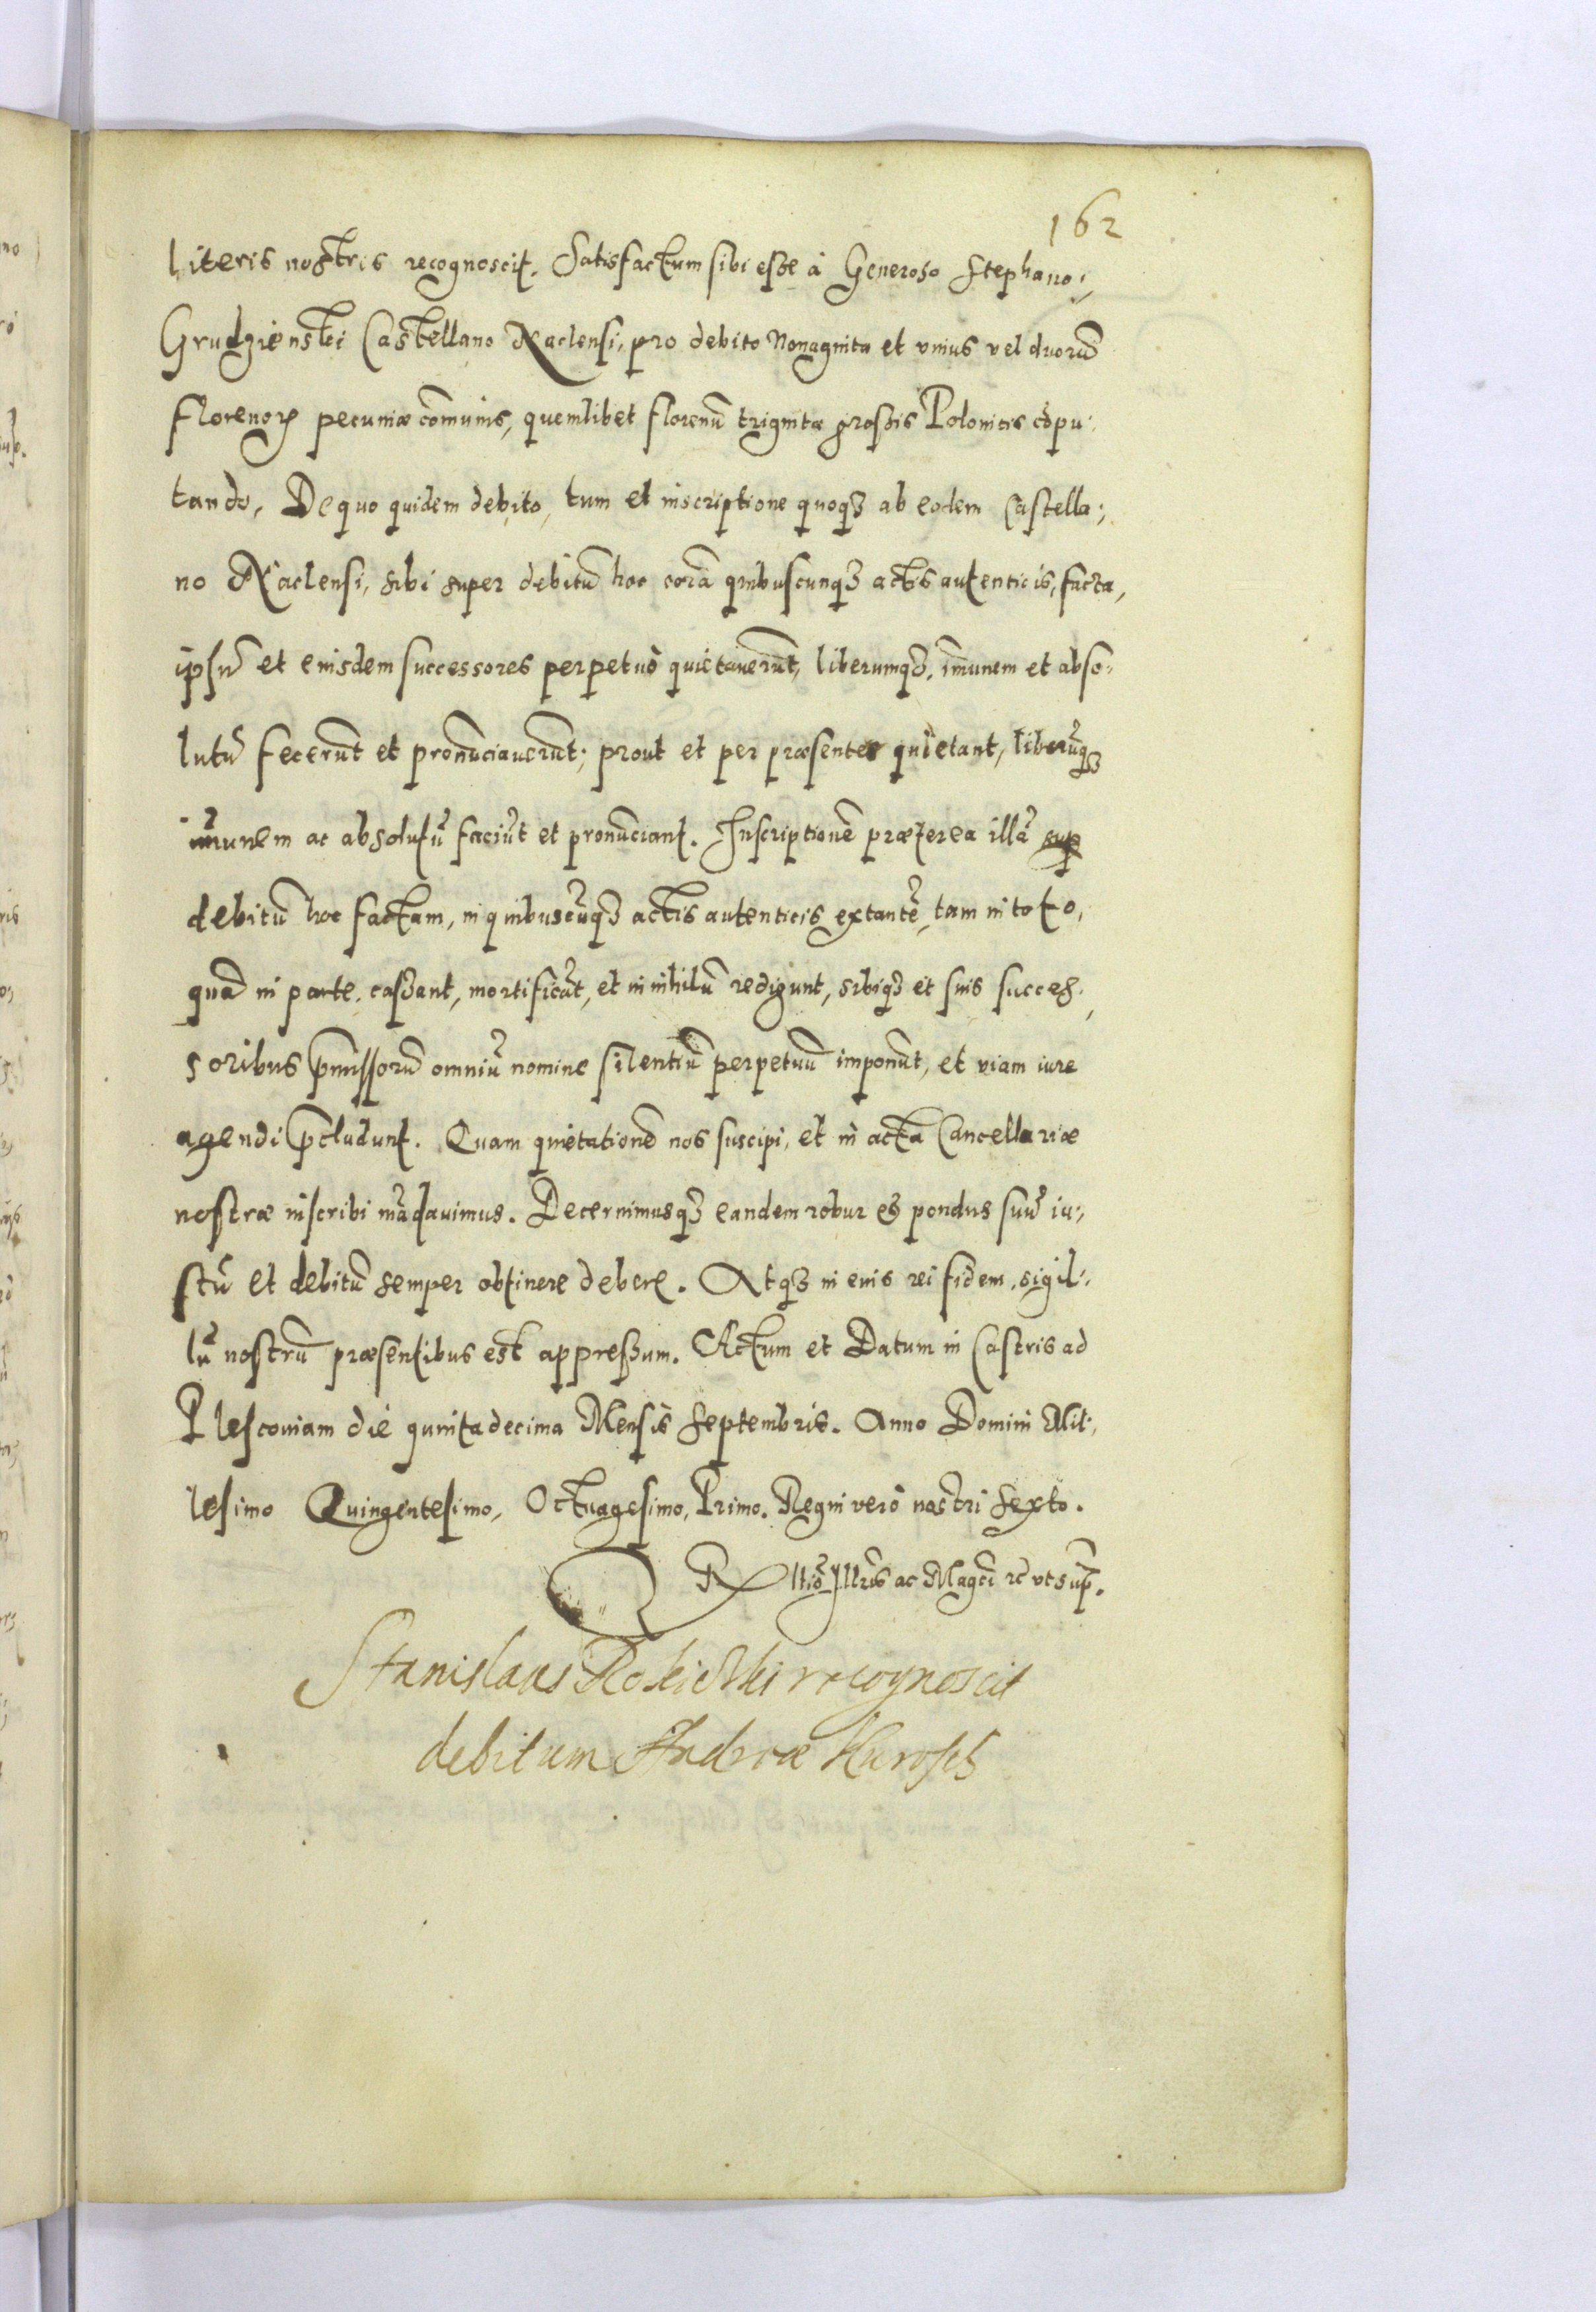 162
literis nostris recognoscit. Satisfactum sibi esse à Generoso Stephano
Grudzienski Castellano Naclensi, pro debito Nonaginta et vnius vel duorū
florenorꝝ pecuniæ cōmunis, quemlibet florenū triginta grossis Polonicis cōpu-
tando, De quo quidem debito, tum et inscriptione quoqꝫ ab eodem Castella-
no Naclensi, sibi super debitū hoc corā quibuscunqꝫ actis autenticis, facta,
ipsū et eiusdem successores perpetuò quietauerūt, liberumqꝫ, im̄unem et abso-
lutū fecerūt et pronūciauerūt; prout et per præsentes quietant, liberūqꝫ
im̄unem ac absolutū faciūt et pronūciant. Inscriptionē præterea illā sup
debitū hoc factam, in quibuscūqꝫ actis autenticis extantē, tam in toto,
quā in parte, cassant, mortificāt, et in nihilū redigunt, sibiqꝫ et suis succes-
soribus p̄missorū omniū nomine silentiū perpetuū imponūt, et viam iure
agendi p̄cludunt. Quam quietationē nos suscipi, et in acta Cancellariæ
nostræ inscribi mādauimus. Decernimusqꝫ eandem robur et pondus suū iu-
stū et debitū semper obtinere debere. Atqꝫ in eius rei fidem, sigil-
lū nostrū præsentibus est appressum. Actum et Datum in Castris ad
Plescouiam die quinta decima Mensis Septembris. Anno Domini Mil-
lesimo Quingentesimo, Octuagesimo, Primo. Regni verò nostri Sexto.
R ltio Illris ac Magci rc vt sup̄.
Stanislaus Rokickki recognoscit
debitum Andreæ